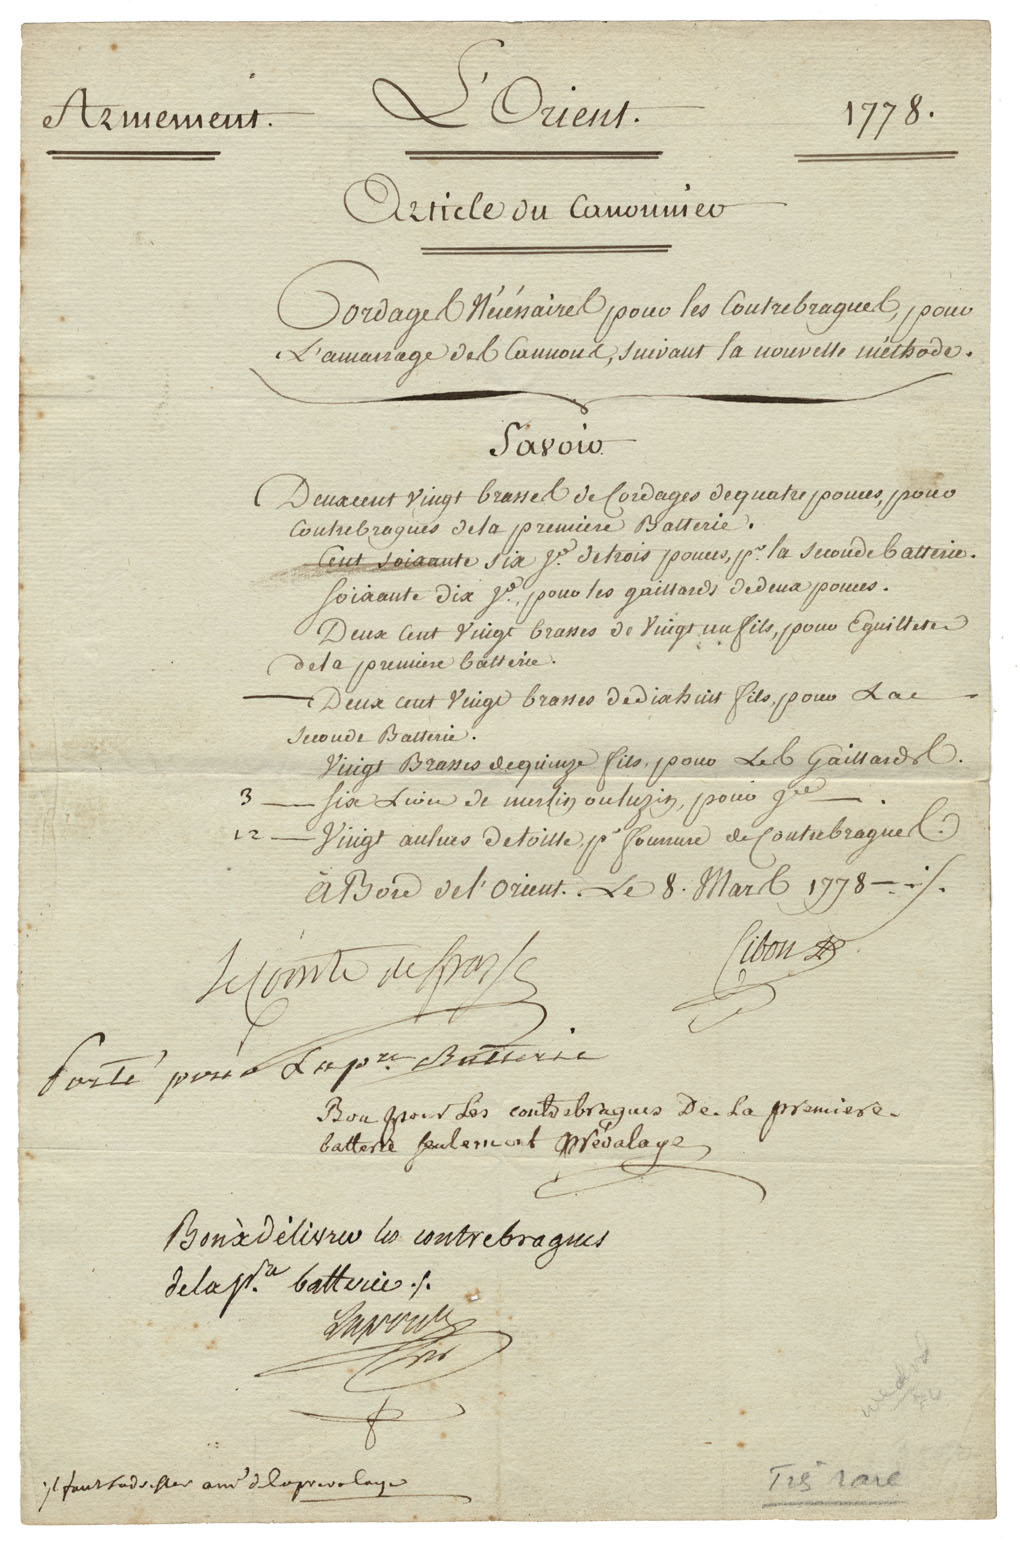 Armement. L'Orient. 1778.
Article du Canonnier
Cordages Nécéssaires pour les Contrebragues, pour
L'amarrage des Cannons, suivant la nouvelle méthode.
Savoir
Deux cent vingt brasses de Cordages de quatre pouces, pour
Contrebragues de la premiere Batterie.
Cent soixante six do. de trois pouces, pr. la seconde batterie.
Soixante dix do. pour les gaillards de deux pouces.
Deux Cent Vingt brasses de Vingt un fils, pour Eguilleter
de la premiere batterie.
Deux cent Vingt brasses de dix huit fils, pour La
seconde Batterie.
Vingt Brasses de quinze fils, pour Les Gaillards.
3 — Six Livre de merlin ou luzin, pour
12 — Vingt aulnes de toille pr. fourrure de Contrebragues.
à Bord de l'Orient. Le 8. Mars 1778 ./.
Le Comte de Grasse
Cibon
Porté pour La pre. Batterie
Bon pour Les contrebragues De La premiere
batterie seulement prévalaye
Bon à Délivrer les contrebragues
de la pra. batterie ./.
il faut s'adresser a mr. de la prevalaye
Très rare